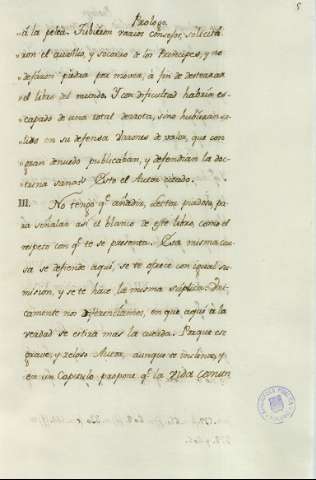 Prologo.
5
"á la pelea. Tubieron varios consejos, solicita
"ron el auxilio, y socorro de los Principes, y no
"dejaron piedra por mover, á fin de desterrar
"el libro del mundo. Y con dificultad habria es-
"capado de una total derrota, sino hubieran sa-
"lido en su defensa Varones de valor, que con
"gran denuedo publicaban, y defendian la doc-
"trina sana. Esto el Autor citado.
III. No tengo q.e añadir, Lector piadoso, pa-
ra señalar asi el blanco de este libro, como el
respeto con q.e se te presenta. Esta misma cau-
sa se defiende aqui, se te ofrece con igual su-
mision, y se te hace la misma súplica. Uni-
camente nos diferenciamos, en que aqui á la
verdad se estira mas la cuerda. Porque ese
grave, y zeloso Autor, aunque se inclina, y
en un Capitulo propone q.e la vida comun